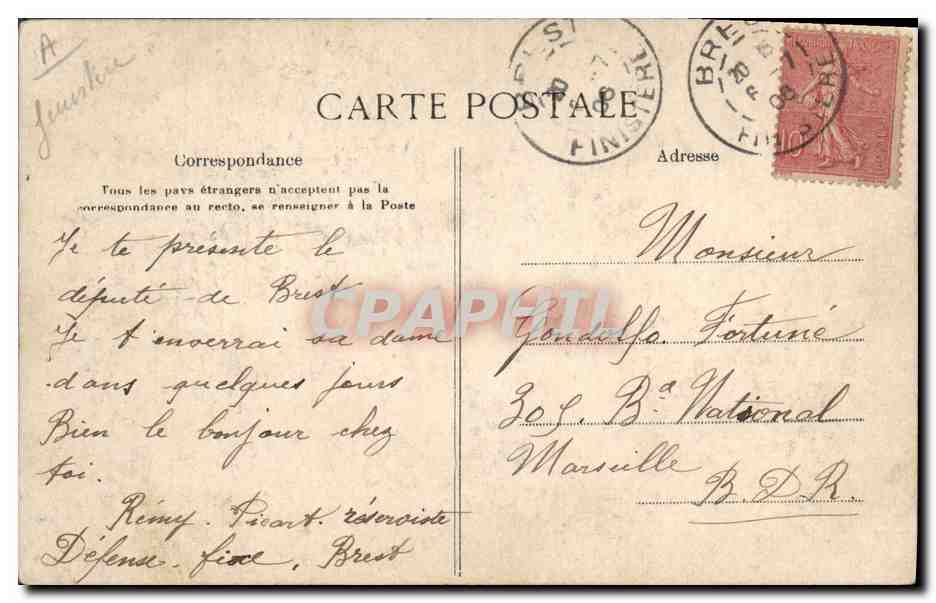 A
finistère
CARTE POSTALE
BREST
FINISTERE
BREST
FINISTERE
10
Correspondance
Tous les pays étrangers n'acceptent pas la
correspondance au recto, se renseigner à la Poste
Adresse
Je te présente le
député de Brest
Je t'enverrai sa dame
dans quelques jours
Bien le bonjour chez
toi.
Rémy. Picart. réserviste
Défense fixe, Brest
Monsieur
Gondolfo Fortuné
309. Bd National
Marseille
B. D. R.
CPAPHIL